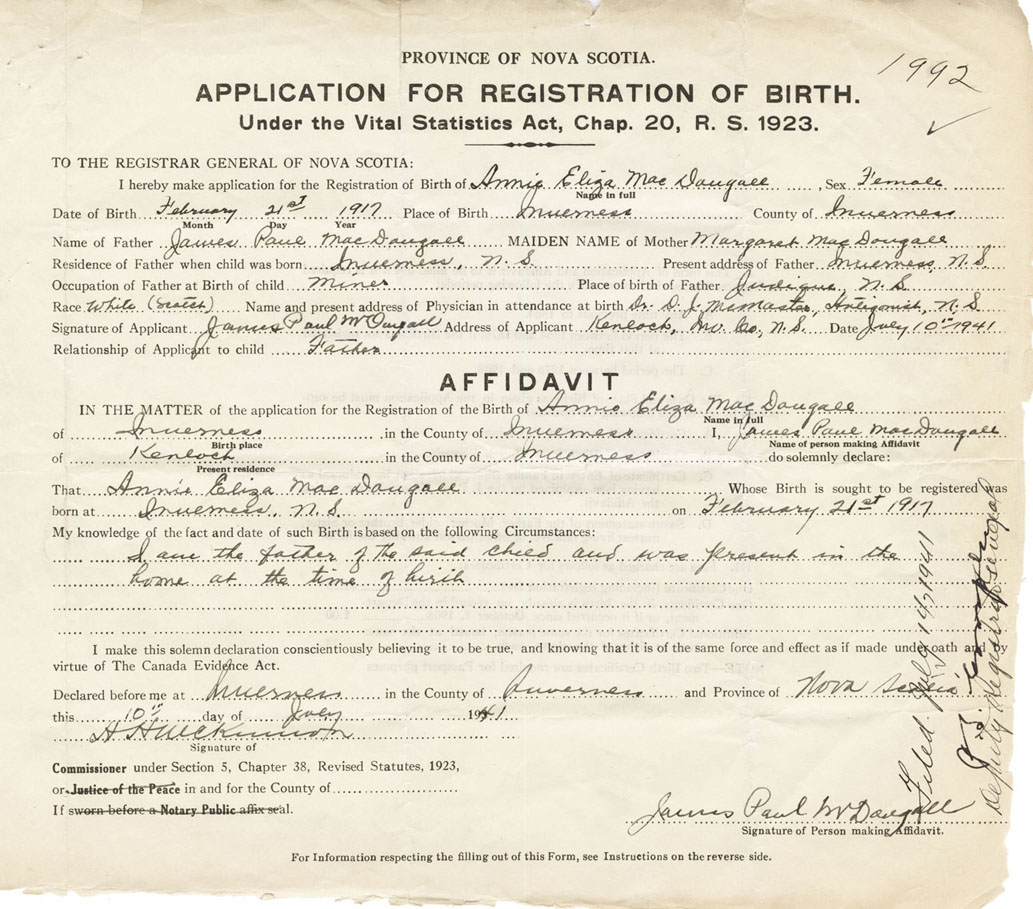 PROVINCE OF NOVA SCOTIA.
1992
APPLICATION FOR REGISTRATION OF BIRTH.
Under the Vital Statistics Act, Chap. 20, R. S. 1923.
TO THE REGISTRAR GENERAL OF NOVA SCOTIA:
I hereby make application for the Registration of Birth of Annie Eliza Mac Dougall, Sex Female
Name in full
Date of Birth February 21st 1917 Place of Birth Inverness County of Inverness
Month Day Year
Name of Father James Paul MacDougall MAIDEN NAME of Mother Margaret MacDougall
Residence of Father when child was born Inverness, N. S. Present address of Father Inverness, N. S.
Occupation of Father at Birth of child Miner Place of birth of Father Judique, N. S.
Race White (Scotch) Name and present address of Physician in attendance at birth Dr. D. J. McMaster, Antigonish, N. S.
Signature of Applicant James Paul McDougall Address of Applicant Kenloch, Inv. Co., N. S. Date July 10th 1941
Relationship of Applicant to child Father
AFFIDAVIT
IN THE MATTER of the application for the Registration of the Birth of Annie Eliza MacDougall
Name in full
of Inverness in the County of Inverness I, James Paul MacDougall
Birth place Name of person making Affidavit
of Kenloch in the County of Inverness do solemnly declare:
Present residence
That Annie Eliza MacDougall Whose Birth is sought to be registered was
born at Inverness, N. S. on February 21st 1917
My knowledge of the fact and date of such Birth is based on the following Circumstances:
I am the father of the said child and was present in the
home at the time of birth
I make this solemn declaration conscientiously believing it to be true, and knowing that it is of the same force and effect as if made under oath and
virtue of The Canada Evidence Act.
Declared before me at Inverness in the County of Inverness and Province of Nova Scotia
this 10th day of July 1941
Signature of
Commissioner under Section 5, Chapter 38, Revised Statutes, 1923,
or Justice of the Peace in and for the County of
If sworn before a Notary Public affix seal.
James Paul McDougall
Signature of Person making Affidavit.
For Information respecting the filling out of this Form, see Instructions on the reverse side.
Filed July 14, 1941
Deputy Registrar General